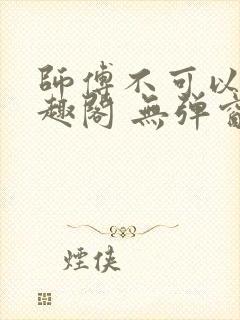 師傅不可以
趣閣 無弹窗
煙侠